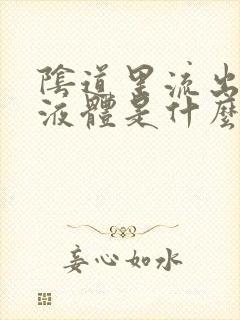 陰道里流出
液體是什麼
妄心如水